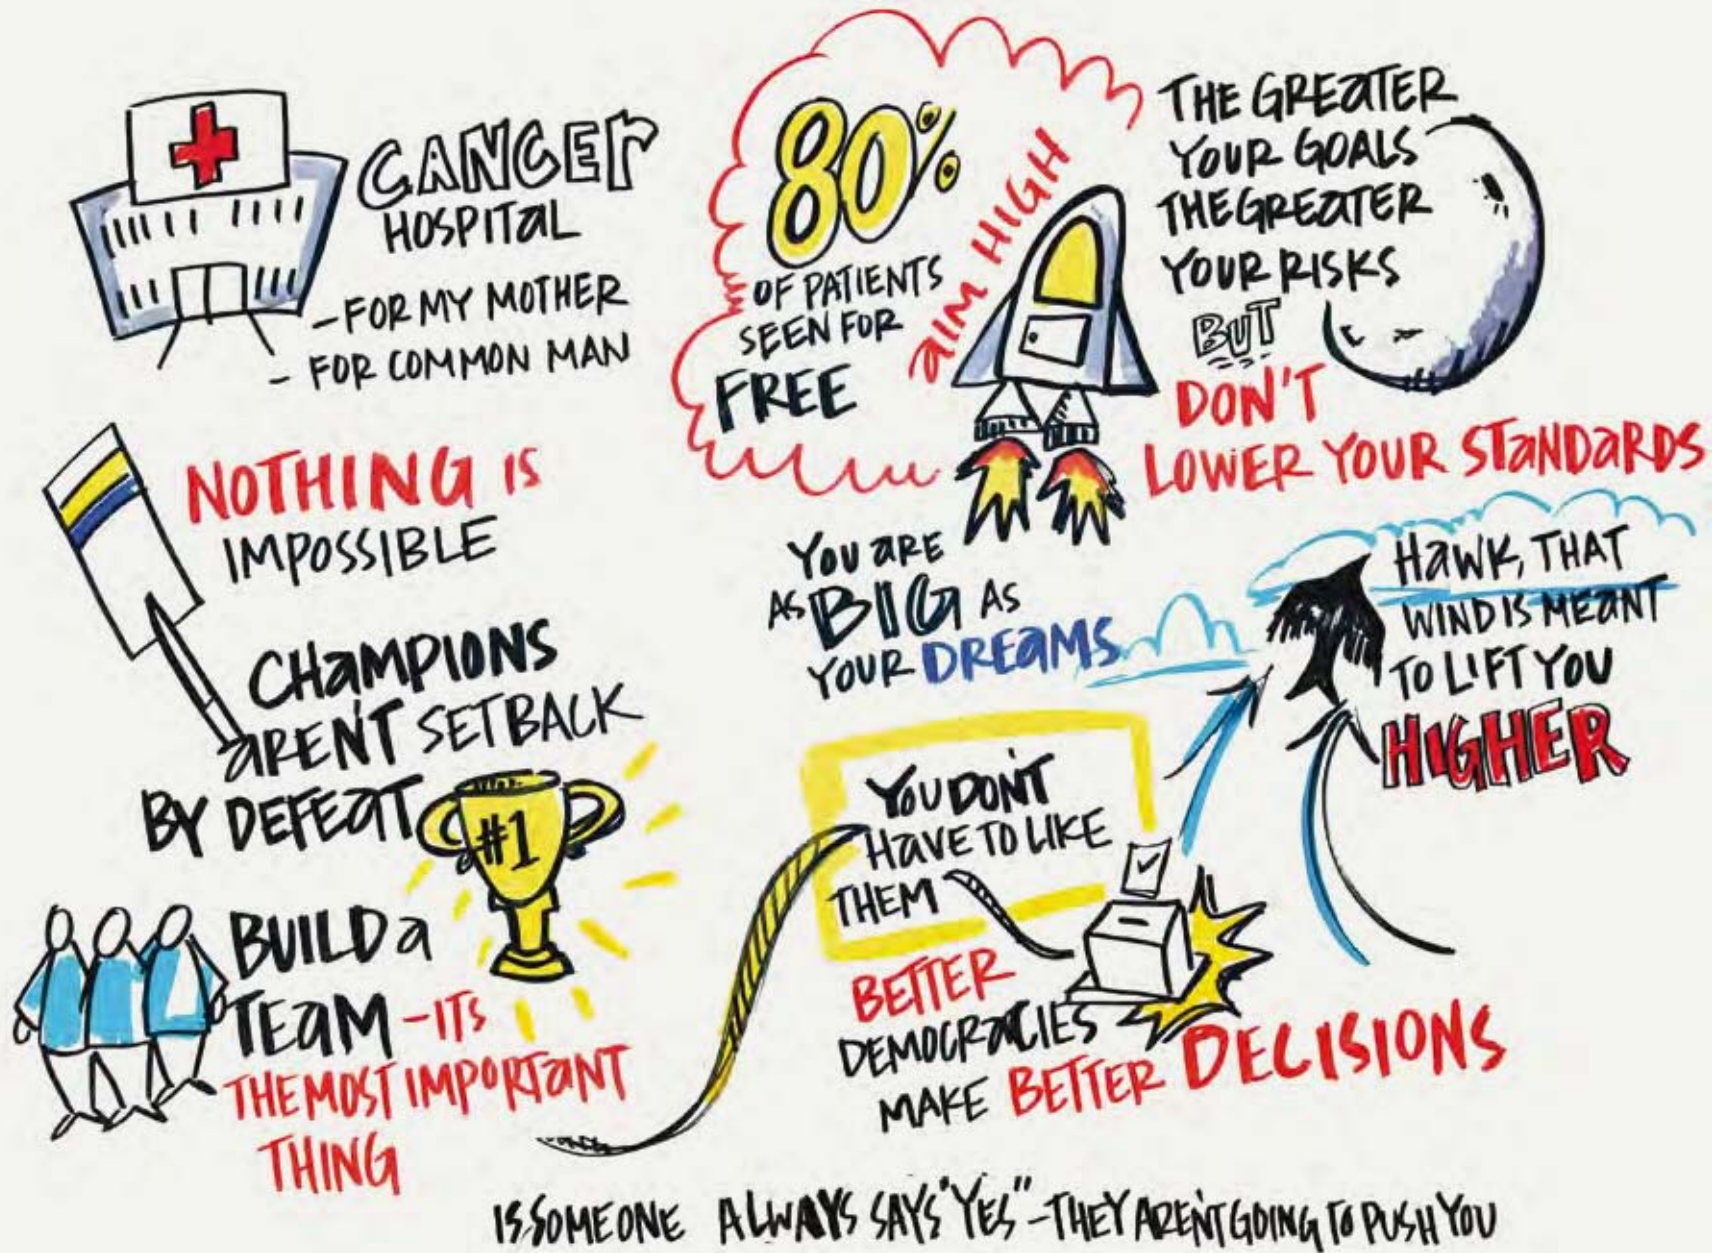 CANCER
HOSPITAL
- FOR MY MOTHER
- FOR COMMON MAN
80%
OF PATIENTS
SEEN FOR
FREE
AIM HIGH
THE GREATER
YOUR GOALS
THE GREATER
YOUR RISKS
BUT
DON'T
LOWER YOUR STANDARDS
NOTHING IS
IMPOSSIBLE
CHAMPIONS
AREN'T SETBACK
BY DEFEAT
#1
YOU ARE
AS BIG AS
YOUR DREAMS
HAWK, THAT
WIND IS MEANT
TO LIFT YOU
HIGHER
BUILD A
TEAM - ITS
THE MOST IMPORTANT
THING
YOU DON'T
HAVE TO LIKE
THEM
BETTER
DEMOCRACIES
MAKE BETTER DECISIONS
IS SOMEONE ALWAYS SAYS "YES" - THEY AREN'T GOING TO PUSH YOU